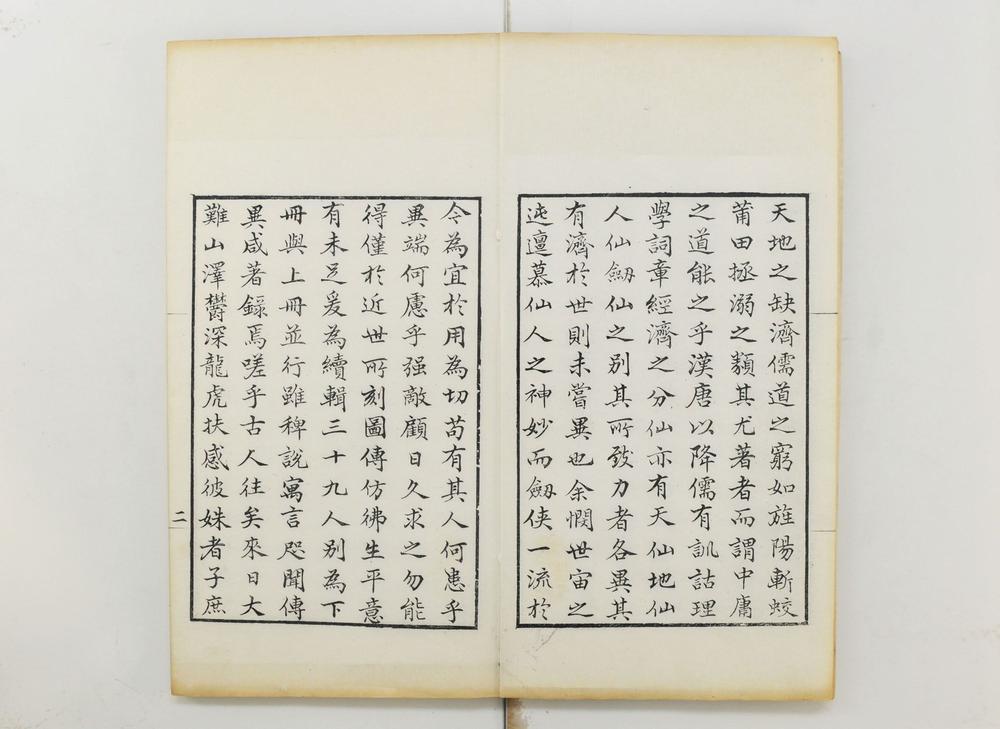 天地之缺濟儒道之窮如旌陽斬蛟
莆田拯溺之類其尤著者而謂中庸
之道能之乎漢唐以降儒有訓詁理
學詞章經濟之分仙亦有天仙地仙
人仙劔仙之別其所致力者各異其
有濟於世則未嘗異也余憫世宙之
迍邅慕仙人之神妙而劔俠一流於
今為宜於用為切苟有其人何患乎
異端何慮乎强敵顧日久求之勿能
得僅於近世所刻圖傳仿彿生平意
有未足爰為續輯三十九人別為下
冊與上冊並行雖稗說寓言咫聞傳
異咸著錄焉嗟乎古人往矣來日大
難山澤鬱深龍虎扶感彼姝者子庶
二